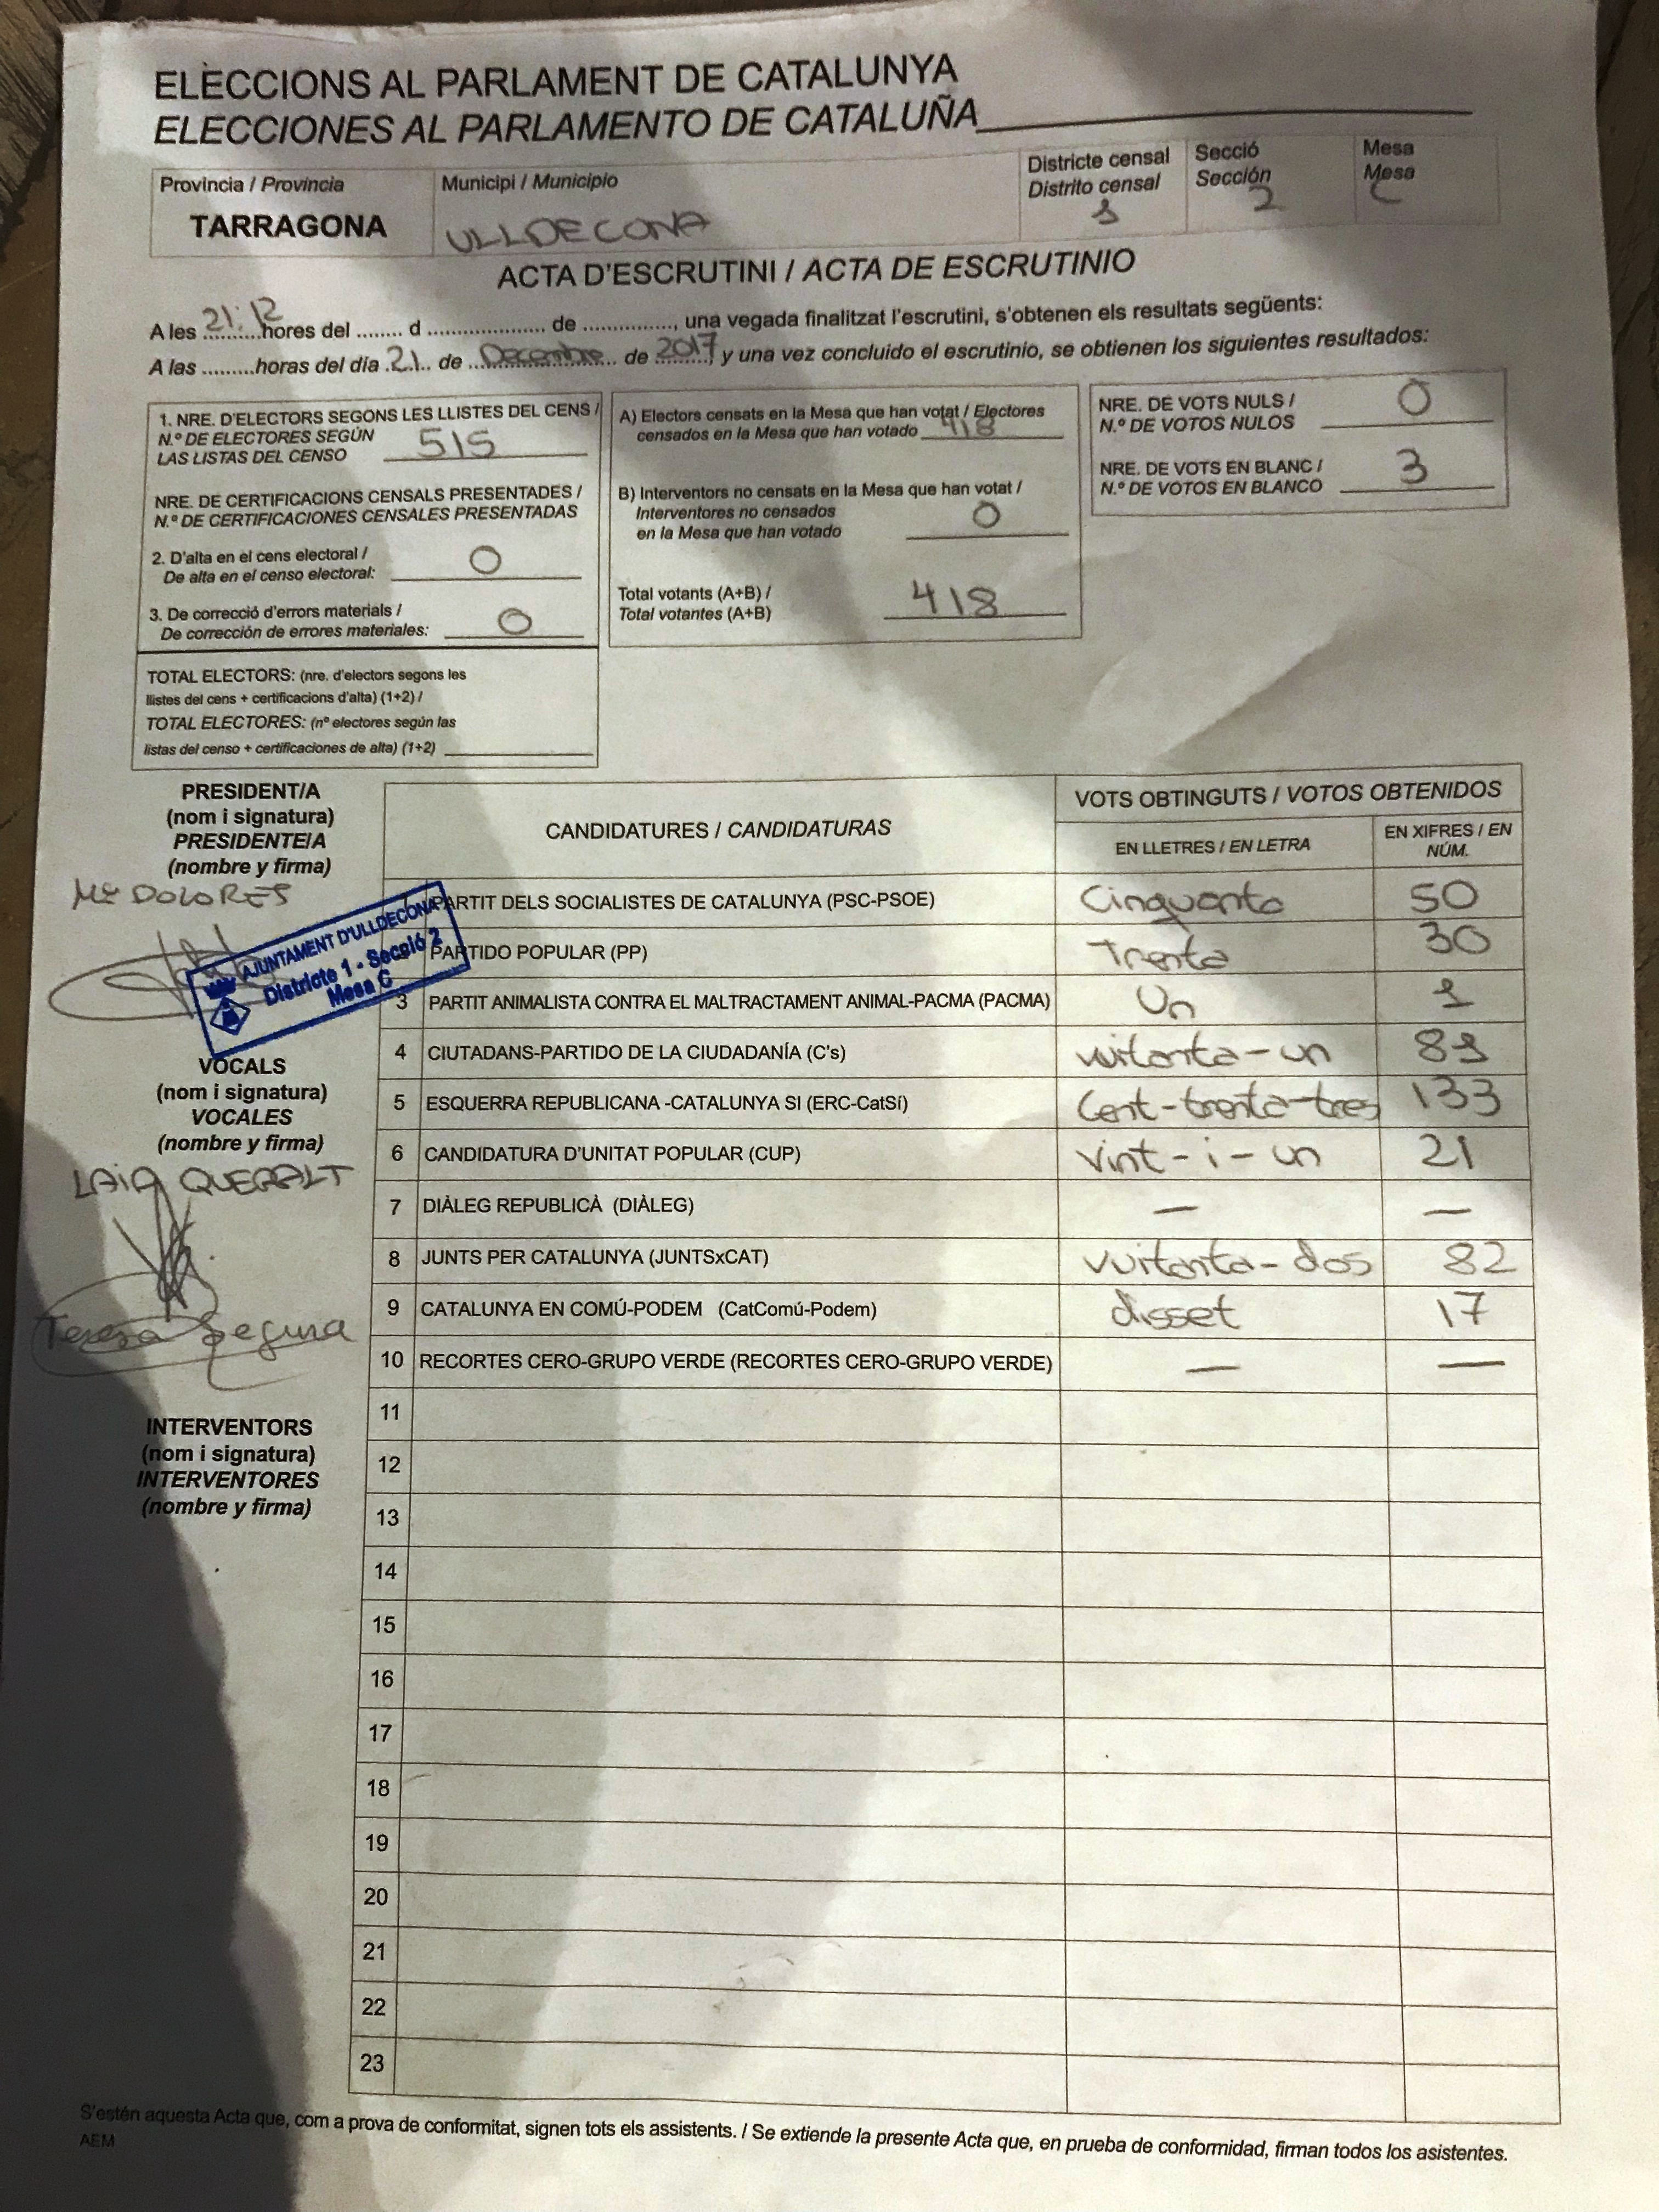 ELECCIONS AL PARLAMENT DE CATALUNYA
ELECCIONES AL PARLAMENTO DE CATALUÑA
Provincia / Provincia
TARRAGONA
Municipi / Municipio
ULLDECONA
Districte censal
Distrito censal
1
Secció
Sección
2
Mesa
Mesa
C
ACTA D'ESCRUTINI / ACTA DE ESCRUTINIO
A les 21:12 hores del ........ d .................... de ..............., una vegada finalitzat l'escrutini, s'obtenen els resultats següents:
A las .........horas del día 21 de Decembre de 2017, y una vez concluido el escrutinio, se obtienen los siguientes resultados:
1. NRE. D'ELECTORS SEGONS LES LLISTES DEL CENS /
N.º DE ELECTORES SEGÚN
LAS LISTAS DEL CENSO 515
NRE. DE CERTIFICACIONS CENSALS PRESENTADES /
N.º DE CERTIFICACIONES CENSALES PRESENTADAS
2. D'alta en el cens electoral /
De alta en el censo electoral: 0
3. De correcció d'errors materials /
De corrección de errores materiales: 0
TOTAL ELECTORS: (nre. d'electors segons les
llistes del cens + certificacions d'alta) (1+2) /
TOTAL ELECTORES: (nº electores según las
listas del censo + certificaciones de alta) (1+2)
A) Electors censats en la Mesa que han votat / Electores
censados en la Mesa que han votado 418
B) Interventors no censats en la Mesa que han votat /
Interventores no censados
en la Mesa que han votado 0
Total votants (A+B) /
Total votantes (A+B) 418
NRE. DE VOTS NULS /
N.º DE VOTOS NULOS 0
NRE. DE VOTS EN BLANC /
N.º DE VOTOS EN BLANCO 3
PRESIDENT/A
(nom i signatura)
PRESIDENTE/A
(nombre y firma)
Mª DOLORES
AJUNTAMENT D'ULLDECONA
Districte 1 - Secció 2
Mesa C
VOCALS
(nom i signatura)
VOCALES
(nombre y firma)
LAIA QUERALT
Teresa Segura
INTERVENTORS
(nom i signatura)
INTERVENTORES
(nombre y firma)
CANDIDATURES / CANDIDATURAS
VOTS OBTINGUTS / VOTOS OBTENIDOS
EN LLETRES / EN LETRA
EN XIFRES / EN
NÚM.
PARTIT DELS SOCIALISTES DE CATALUNYA (PSC-PSOE) Cinquanta 50
PARTIDO POPULAR (PP) Trenta 30
3 PARTIT ANIMALISTA CONTRA EL MALTRACTAMENT ANIMAL-PACMA (PACMA) Un 1
4 CIUTADANS-PARTIDO DE LA CIUDADANÍA (C's) vuitanta-un 81
5 ESQUERRA REPUBLICANA -CATALUNYA SI (ERC-CatSí) Cent-trenta-tres 133
6 CANDIDATURA D'UNITAT POPULAR (CUP) vint-i-un 21
7 DIÀLEG REPUBLICÀ (DIÀLEG) — —
8 JUNTS PER CATALUNYA (JUNTSxCAT) vuitanta-dos 82
9 CATALUNYA EN COMÚ-PODEM (CatComú-Podem) disset 17
10 RECORTES CERO-GRUPO VERDE (RECORTES CERO-GRUPO VERDE) — —
11
12
13
14
15
16
17
18
19
20
21
22
23
S'estén aquesta Acta que, com a prova de conformitat, signen tots els assistents. / Se extiende la presente Acta que, en prueba de conformidad, firman todos los asistentes.
AEM